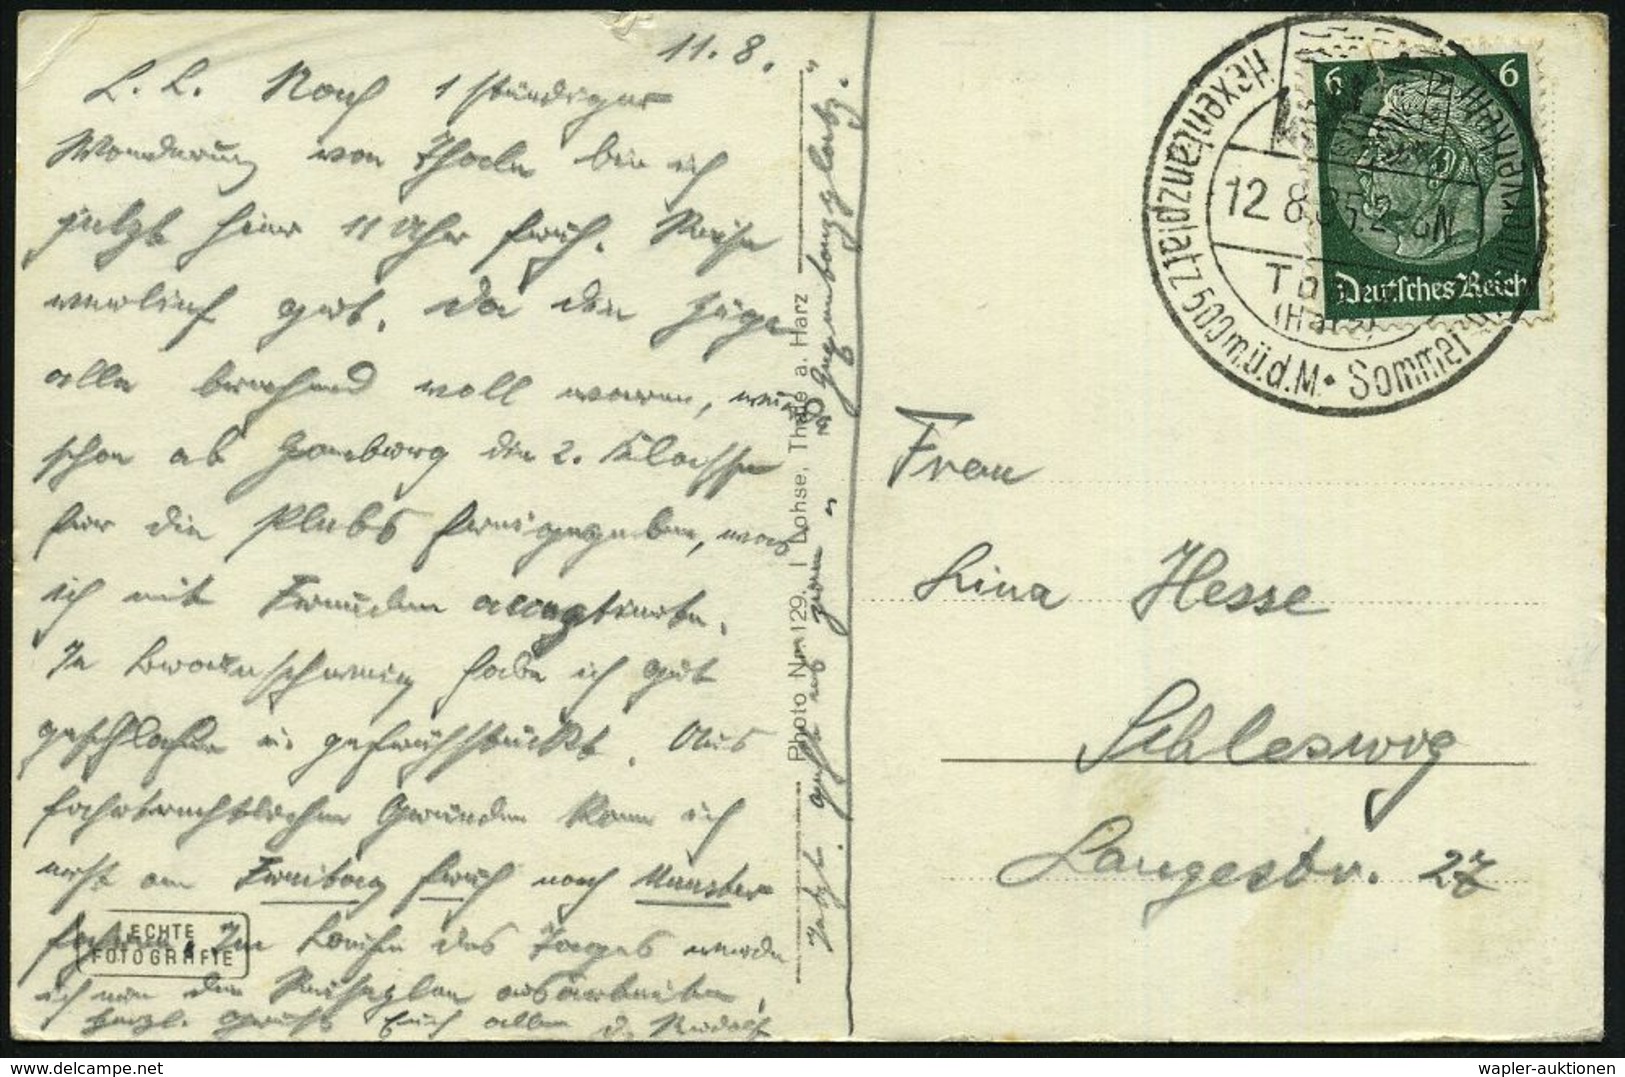 11.8.
L. L. Nach 1 stündiger
Wanderung von Thale bin ich
jetzt hier 11 Uhr früh. Reise
verlief gut. Da die Züge
alle brechend voll waren, wurde
schon ab Hamburg die 2. Klasse
für die Plebs freigegeben, was
ich mit Freuden akzeptierte.
In Braunschweig habe ich gut
geschlafen u. gefrühstückt. Aus
fahrtechnischen Gründen kann ich
erst am Freitag früh nach Munster
fahren. Im Laufe des Tages werde
ich nun den Reiseplan ausarbeiten.
Herzl. Grüße Euch allen D. Rudolf
Jetzt geht es zum "Hexentanzplatz."
Photo Nr. 129, I. Lohse, Thale a. Harz
ECHTE
FOTOGRAFIE
Hexentanzplatz 500m.ü.d.M. • Sommer
12.8.35.
(Harz)
6 6
Deutsches Reich
Frau
Lina Hesse
Schleswig
Langestr. 27
wapler-auktionen
www.delcampe.net